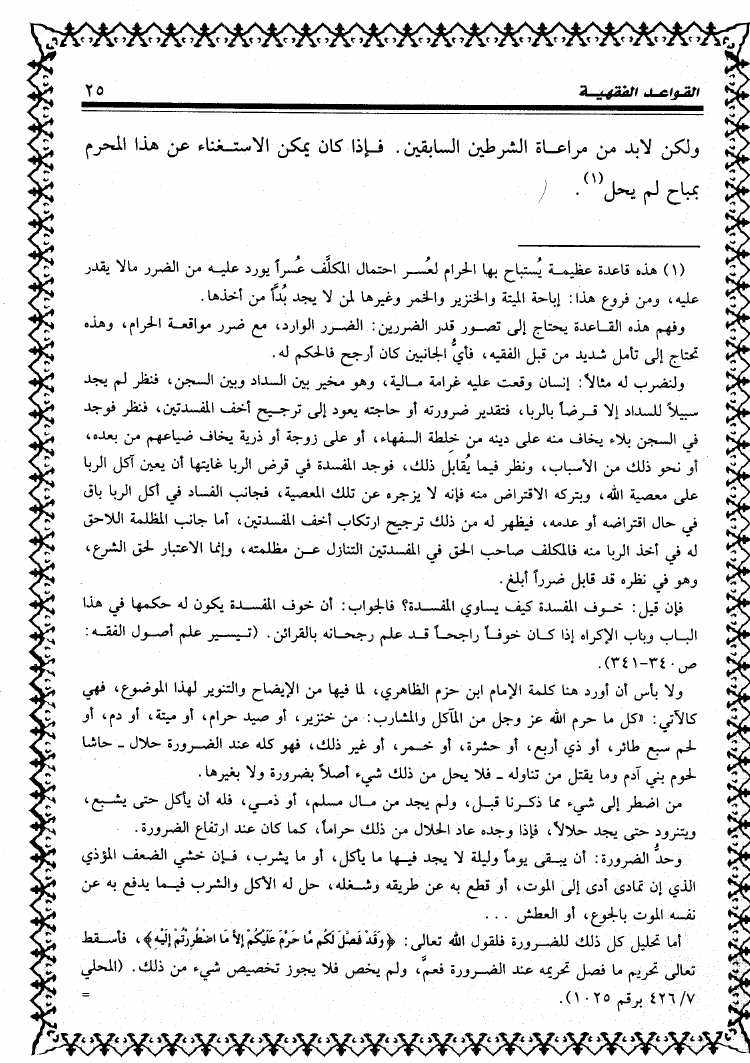 القواعد الفقهية ٢٥
ولكن لابد من مراعاة الشرطين السابقين. فإذا كان يمكن الاستغناء عن هذا المحرم
بمباح لم يحل(١).
(١) هذه قاعدة عظيمة يُستباح بها الحرام لعُسر احتمال المكلَّف عُسراً يورد عليه من الضرر مالا يقدر
عليه، ومن فروع هذا: إباحة الميتة والخنزير والخمر وغيرها لمن لا يجد بُدّاً من أخذها.
وفهم هذه القاعدة يحتاج إلى تصور قدر الضررين: الضرر الوارد، مع ضرر مواقعة الحرام، وهذه
تحتاج إلى تأمل شديد من قبل الفقيه، فأيُّ الجانبين كان أرجح فالحكم له.
ولنضرب له مثالاً: إنسان وقعت عليه غرامة مالية، وهو مخير بين السداد وبين السجن، فنظر لم يجد
سبيلاً للسداد إلا قرضاً بالربا، فتقدير ضرورته أو حاجته يعود إلى ترجيح أخف المفسدتين، فنظر فوجد
في السجن بلاء يخاف منه على دينه من خلطة السفهاء، أو على زوجة أو ذرية يخاف ضياعهم من بعده،
أو نحو ذلك من الأسباب، ونظر فيما يُقابل ذلك، فوجد المفسدة في قرض الربا غايتها أن يعين آكل الربا
على معصية الله، وبتركه الاقتراض منه فإنه لا يزجره عن تلك المعصية، فجانب الفساد في أكل الربا باق
في حال اقتراضه أو عدمه، فيظهر له من ذلك ترجيح ارتكاب أخف المفسدتين، أما جانب المظلمة اللاحق
له في أخذ الربا منه فالمكلف صاحب الحق في المفسدتين التنازل عن مظلمته، وإنما الاعتبار لحق الشرع،
وهو في نظره قد قابل ضرراً أبلغ.
فإن قيل: خوف المفسدة كيف يساوي المفسدة؟ فالجواب: أن خوف المفسدة يكون له حكمها في هذا
الباب وباب الإكراه إذا كان خوفاً راجحاً قد علم رجحانه بالقرائن. (تيسير علم أصول الفقه:
ص٣٤٠-٣٤١).
ولا بأس أن أورد هنا كلمة الإمام ابن حزم الظاهري، لما فيها من الإيضاح والتنوير لهذا الموضوع، فهي
كالآتي: «كل ما حرم الله عز وجل من المآكل والمشارب: من خنزير، أو صيد حرام، أو ميتة، أو دم، أو
لحم سبع طائر، أو ذي أربع، أو حشرة، أو خمر، أو غير ذلك، فهو كله عند الضرورة حلال ـ حاشا
لحوم بني آدم وما يقتل من تناوله ـ فلا يحل من ذلك شيء أصلاً بضرورة ولا بغيرها.
من اضطر إلى شيء مما ذكرنا قبل، ولم يجد من مال مسلم، أو ذمي، فله أن يأكل حتى يشبع،
ويتزود حتى يجد حلالاً، فإذا وجده عاد الحلال من ذلك حراماً، كما كان عند ارتفاع الضرورة.
وحدُّ الضرورة: أن يبقى يوماً وليلة لا يجد فيها ما يأكل، أو ما يشرب، فإن خشي الضعف المؤذي
الذي إن تمادى أدى إلى الموت، أو قطع به عن طريقه وشغله، حل له الأكل والشرب فيما يدفع به عن
نفسه الموت بالجوع، أو العطش ...
أما تحليل كل ذلك للضرورة فلقول الله تعالى: ﴿وَقَدْ فَصَّلَ لَكُم مَّا حَرَّمَ عَلَيْكُمْ إِلاَّ مَا اضْطُرِرْتُمْ إِلَيْهِ﴾، فأسقط
تعالى تحريم ما فصل تحريمه عند الضرورة فعمَّ، ولم يخص فلا يجوز تخصيص شيء من ذلك. (المحلي
٤٢٦/٧ برقم ١٠٢٥). =